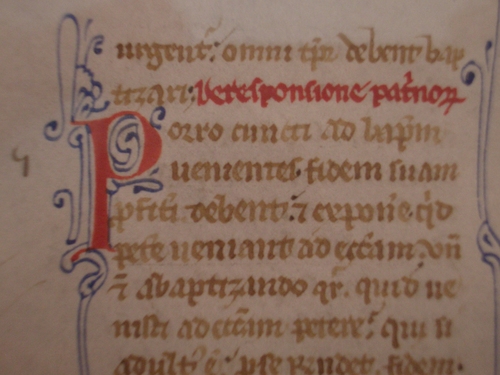 urgent: omni tp̄r debent bap
tizari: De responsione pat̄noꝝ
Porro cuncti ad baptm̄
uenientes. fidem suam
debent: ⁊ exponere
ueniant ad ecc̄am. vn̄
⁊ a baptizando qr̄. quid ue
nisti ad ecc̄am petere: qui si
adult' ē: p se rendet. fidem.